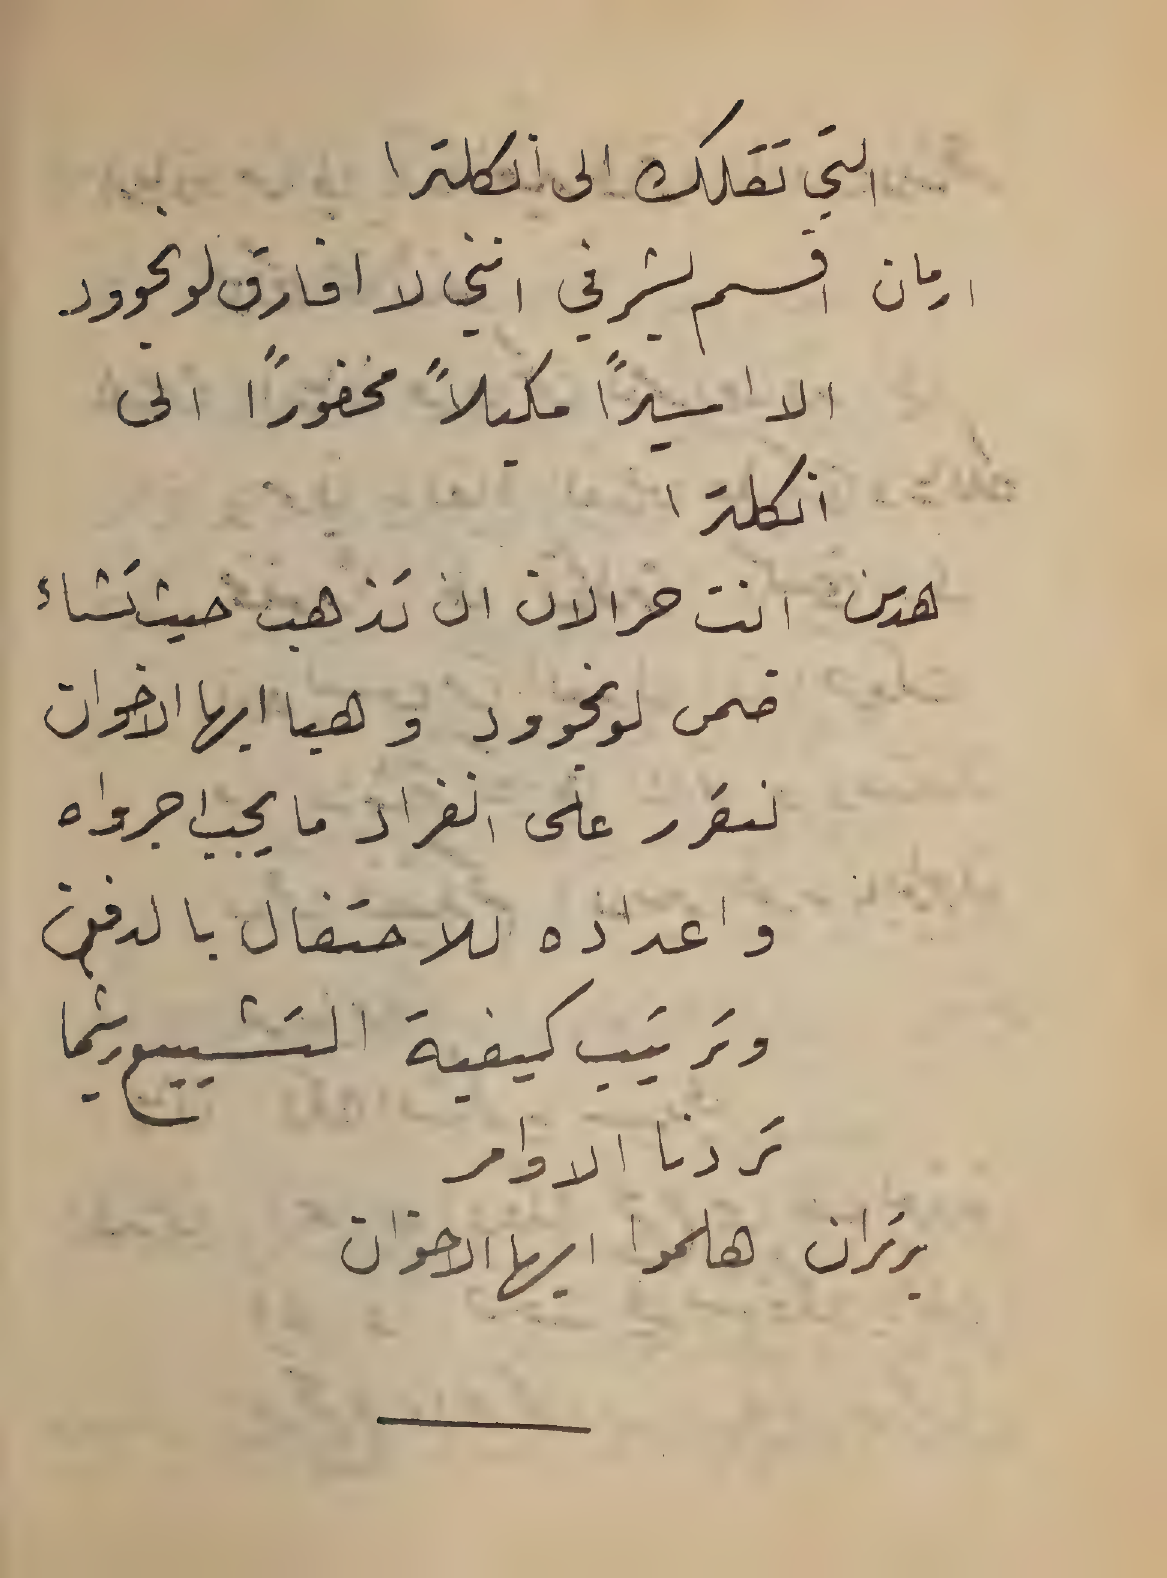 التي تقلك الى انكلترا
ارمان اقسم بشرفي انني لا افارق لونجوود
الا اسيراً مكبلاً مخفوراً الى
انكلترا
هدسن انت حر الان ان تذهب حيث تشاء
ضمن لونجوود وهيا ايها الاخوان
لنقرر على انفراد ما يجب اجرواه
واعداده للاحتفال بالدفن
وترتيب كيفية التشييع ريثما
تردنا الاوامر
برتران هلموا ايها الاخوان